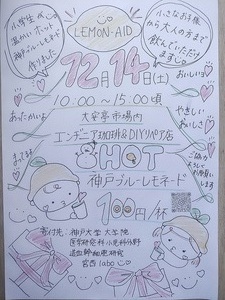 小学生が
温かいホット
神戸ブルーレモネード
作りました
LEMON-AID
小さなお子様
から大人の方まで
飲んでいただけ
ます
12月14日(土)
10:00～15:00頃
大安亭市場内
エンヂニア珈琲&DIYリペア店
HOT
神戸ブルーレモネード
100円/杯
あったかいよ
おいしいよ
やさしい
おいしさ
まってる
よ
ご協力
お願いし
ます
寄付先:神戸大学大学院
医学研究科小児科分野
造血幹細胞研究
宮西labo